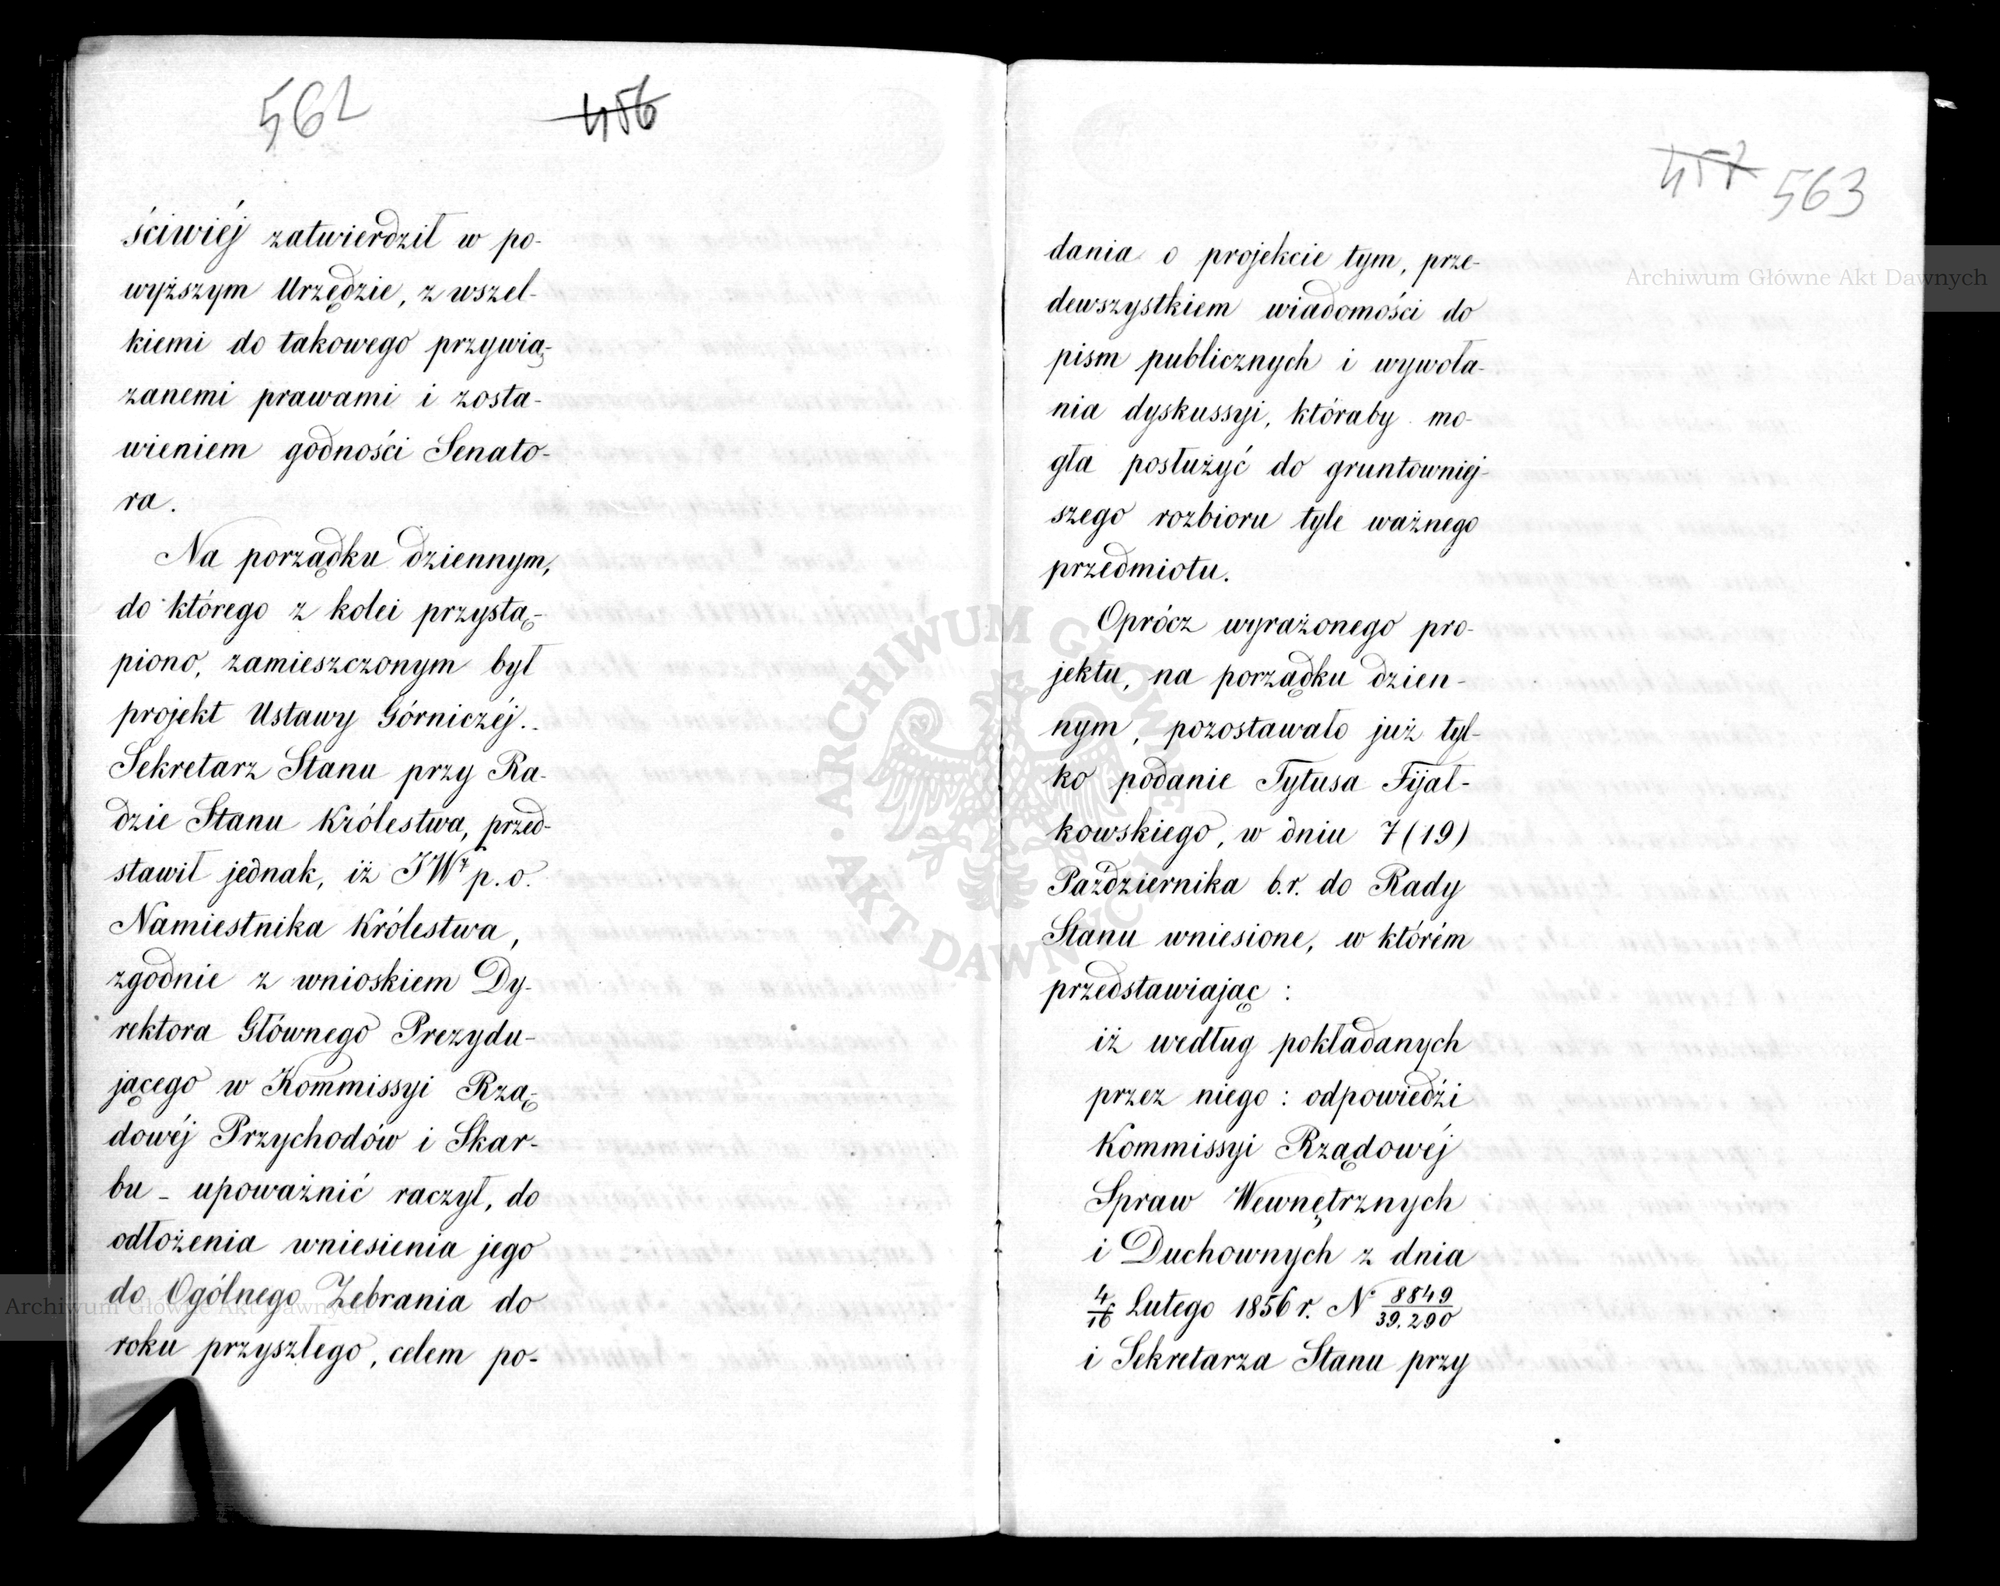 562 456
ściwiéj zatwierdził w po-
wyższym Urzędzie, z wszel-
kiemi do takowego przywią-
zanemi prawami i zosta-
wieniem godności Senato-
ra.
Na porządku dziennym,
do którego z kolei przystą-
piono, zamieszczonym był
projekt Ustawy Górniczéj.
Sekretarz Stanu przy Ra-
dzie Stanu Królestwa, przed-
stawił jednak, iż JWy p. o.
Namiestnika Królestwa,
zgodnie z wnioskiem Dy-
rektora Głównego Prezydu-
jącego w Kommissyi Rzą-
dowéj Przychodów i Skar-
bu - upoważnić raczył, do
odłożenia wniesienia jego
do Ogólnego Zebrania do
roku przyszłego, celem po-
457 563
dania o projekcie tym, prze-
dewszystkiem wiadomości do
pism publicznych i wywoła-
nia dyskussyi, któraby mo-
gła posłużyć do gruntowniéj-
szego rozbioru tyle ważnego
przedmiotu.
Oprócz wyrażonego pro-
jektu, na porządku dzien-
nym, pozostawało już tyl-
ko podanie Tytusa Fijał-
kowskiego, w dniu 7 (19)
Października b.r. do Rady
Stanu wniesione, w którém
przedstawiając:
iż według pokładanych
przez niego: odpowiedźi
Kommissyi Rządowéj
Spraw Wewnętrznych
i Duchownych z dnia
4/16 Lutego 1856 r. N 8849/39.290
i Sekretarza Stanu przy
Archiwum Główne Akt Dawnych
Archiwum Główne Akt Dawnych
ARCHIWUM GŁÓWNE AKT DAWNYCH